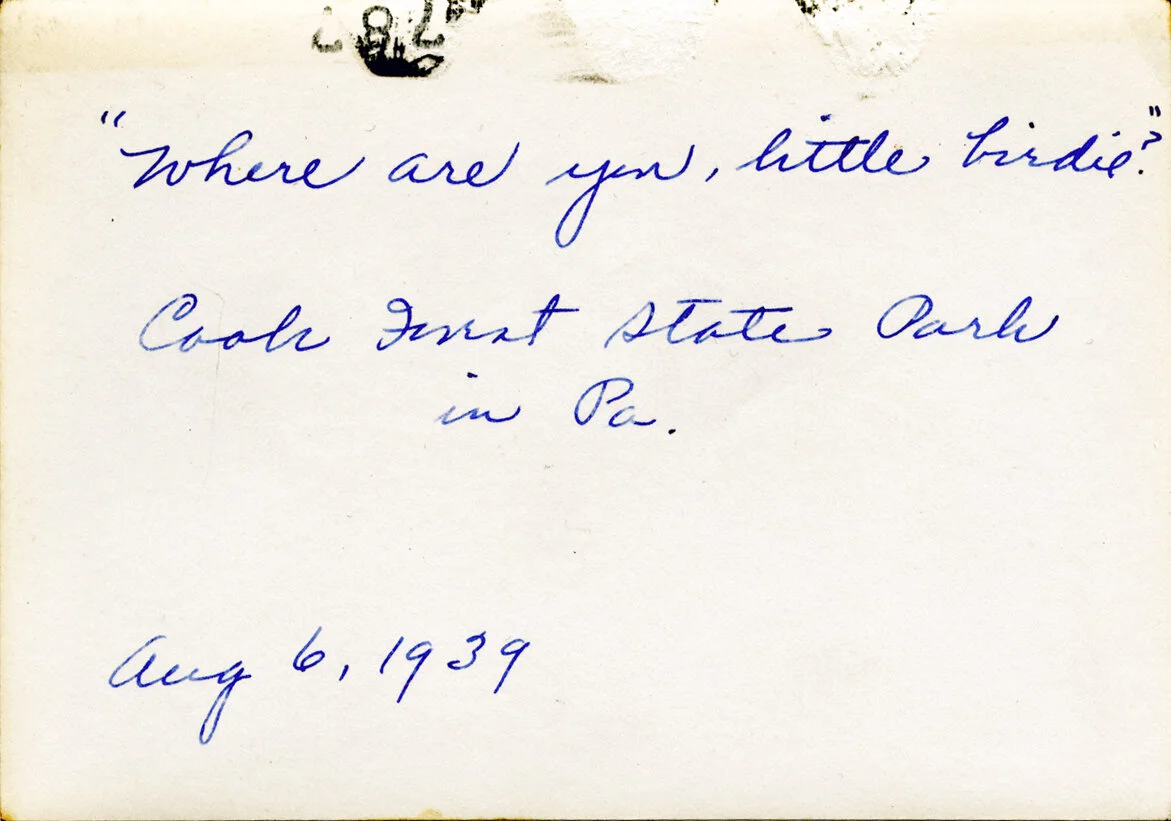 287
"Where are you, little birdie?"
Cook Forest State Park
in Pa.
Aug 6, 1939